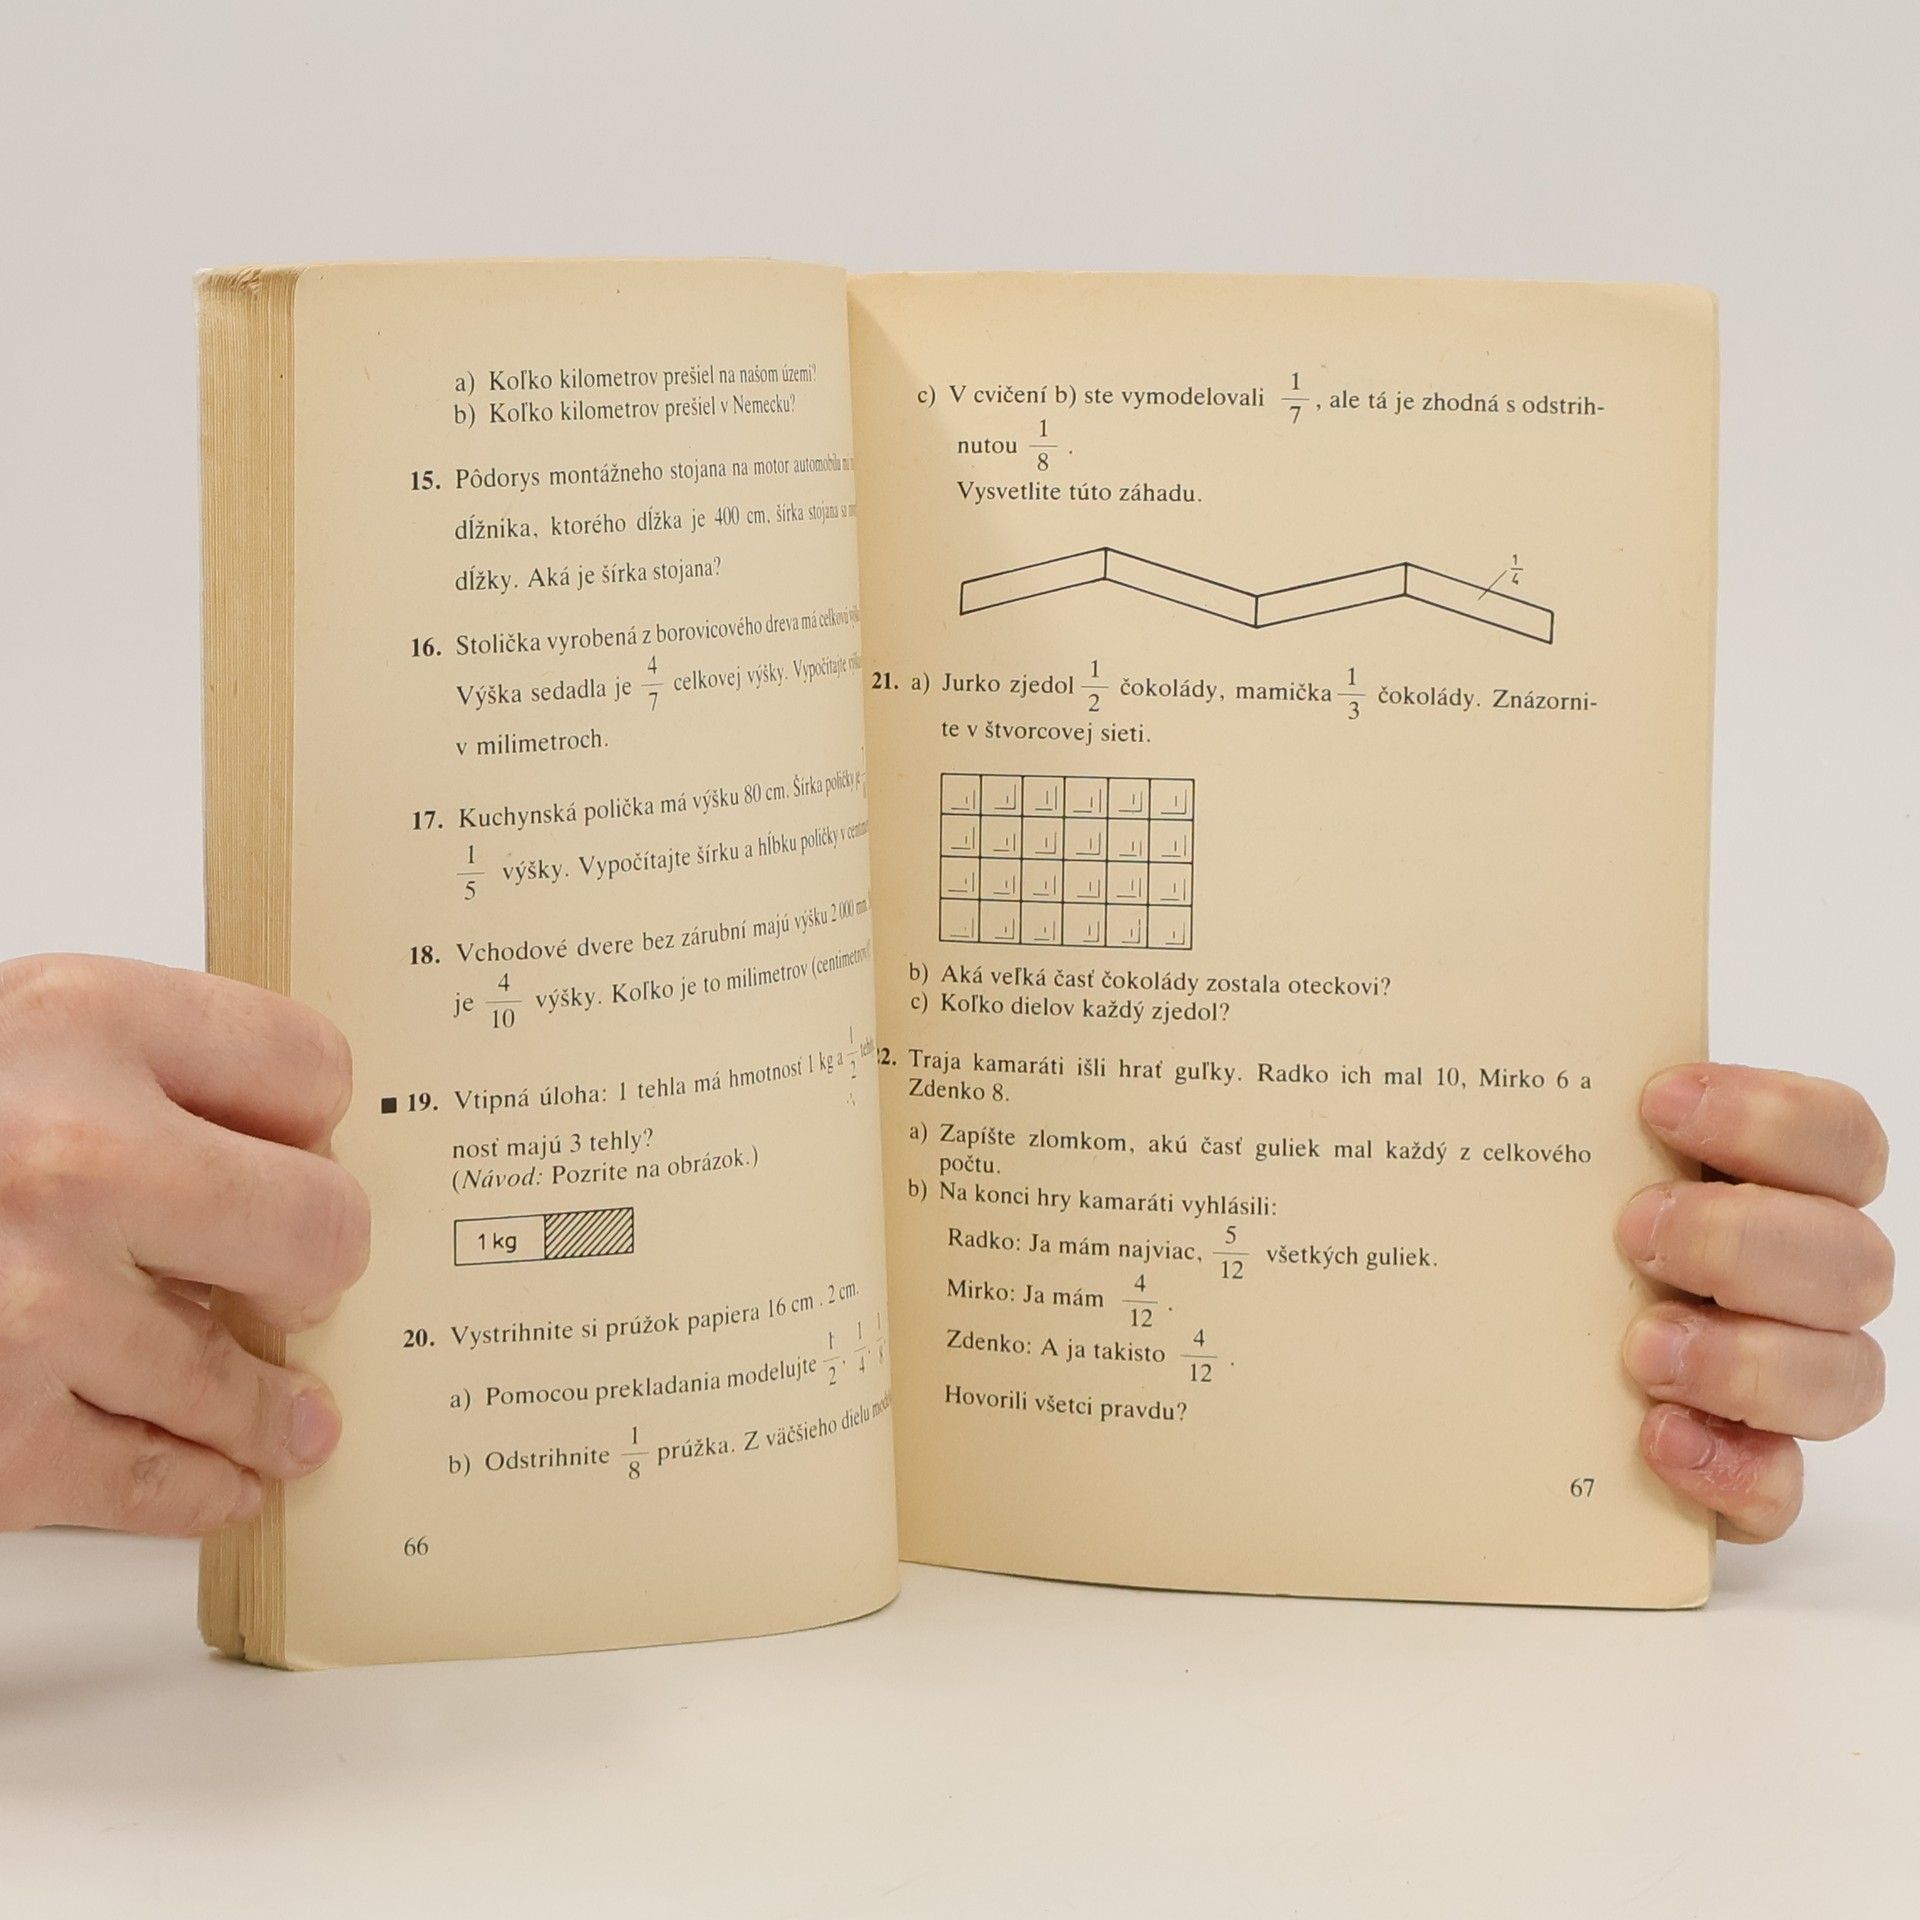 a) Koľko kilometrov prešiel na našom území?
b) Koľko kilometrov prešiel v Nemecku?
15. Pôdorys montážneho stojana na motor automobilu
dĺžnika, ktorého dĺžka je 400 cm, šírka stojana
dĺžky. Aká je šírka stojana?
16. Stolička vyrobená z borovicového dreva má celkovú
Výška sedadla je 4/7 celkovej výšky. Vypočítajte
v milimetroch.
17. Kuchynská polička má výšku 80 cm. Šírka poličky je
1/5 výšky. Vypočítajte šírku a hĺbku poličky v
18. Vchodové dvere bez zárubní majú výšku 2 000 mm.
je 4/10 výšky. Koľko je to milimetrov
19. Vtipná úloha: 1 tehla má hmotnosť 1 kg a 1/2
nosť majú 3 tehly?
(Návod: Pozrite na obrázok.)
1 kg
20. Vystrihnite si prúžok papiera 16 cm . 2 cm.
a) Pomocou prekladania modelujte 1/2, 1/4, 1/8
b) Odstrihnite 1/8 prúžka. Z väčšieho dielu
66
c) V cvičení b) ste vymodelovali 1/7, ale tá je zhodná s odstrih-
nutou 1/8.
Vysvetlite túto záhadu.
1/4
21. a) Jurko zjedol 1/2 čokolády, mamička 1/3 čokolády. Znázorni-
te v štvorcovej sieti.
b) Aká veľká časť čokolády zostala oteckovi?
c) Koľko dielov každý zjedol?
22. Traja kamaráti išli hrať guľky. Radko ich mal 10, Mirko 6 a
Zdenko 8.
a) Zapíšte zlomkom, akú časť guliek mal každý z celkového
počtu.
b) Na konci hry kamaráti vyhlásili:
Radko: Ja mám najviac, 5/12 všetkých guliek.
Mirko: Ja mám 4/12.
Zdenko: A ja takisto 4/12.
Hovorili všetci pravdu?
67